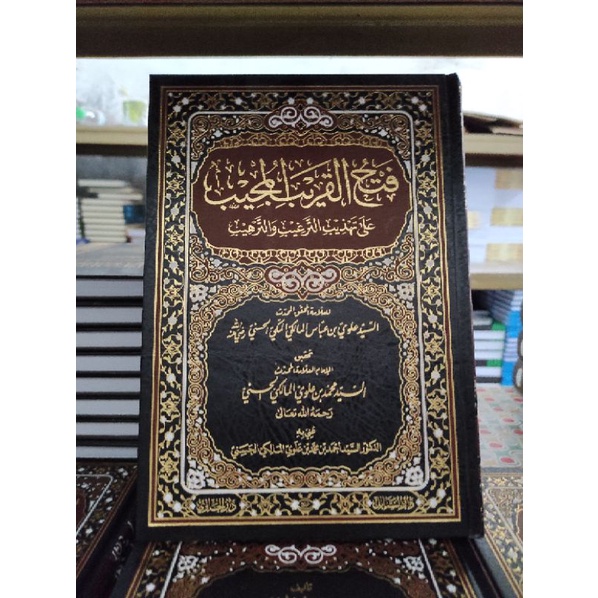 فتح القريب المجيب
على تهذيب الترغيب والترهيب
للعلامة المحقق المحدث
السيد علوي بن عباس المالكي المكي الحسني
تحقيق
الإمام العلامة المحدث
السيد محمد بن علوي المالكي الحسني
رحمه الله تعالى
عني به
الدكتور السيد أحمد بن محمد بن علوي المالكي الحسني
تأليف